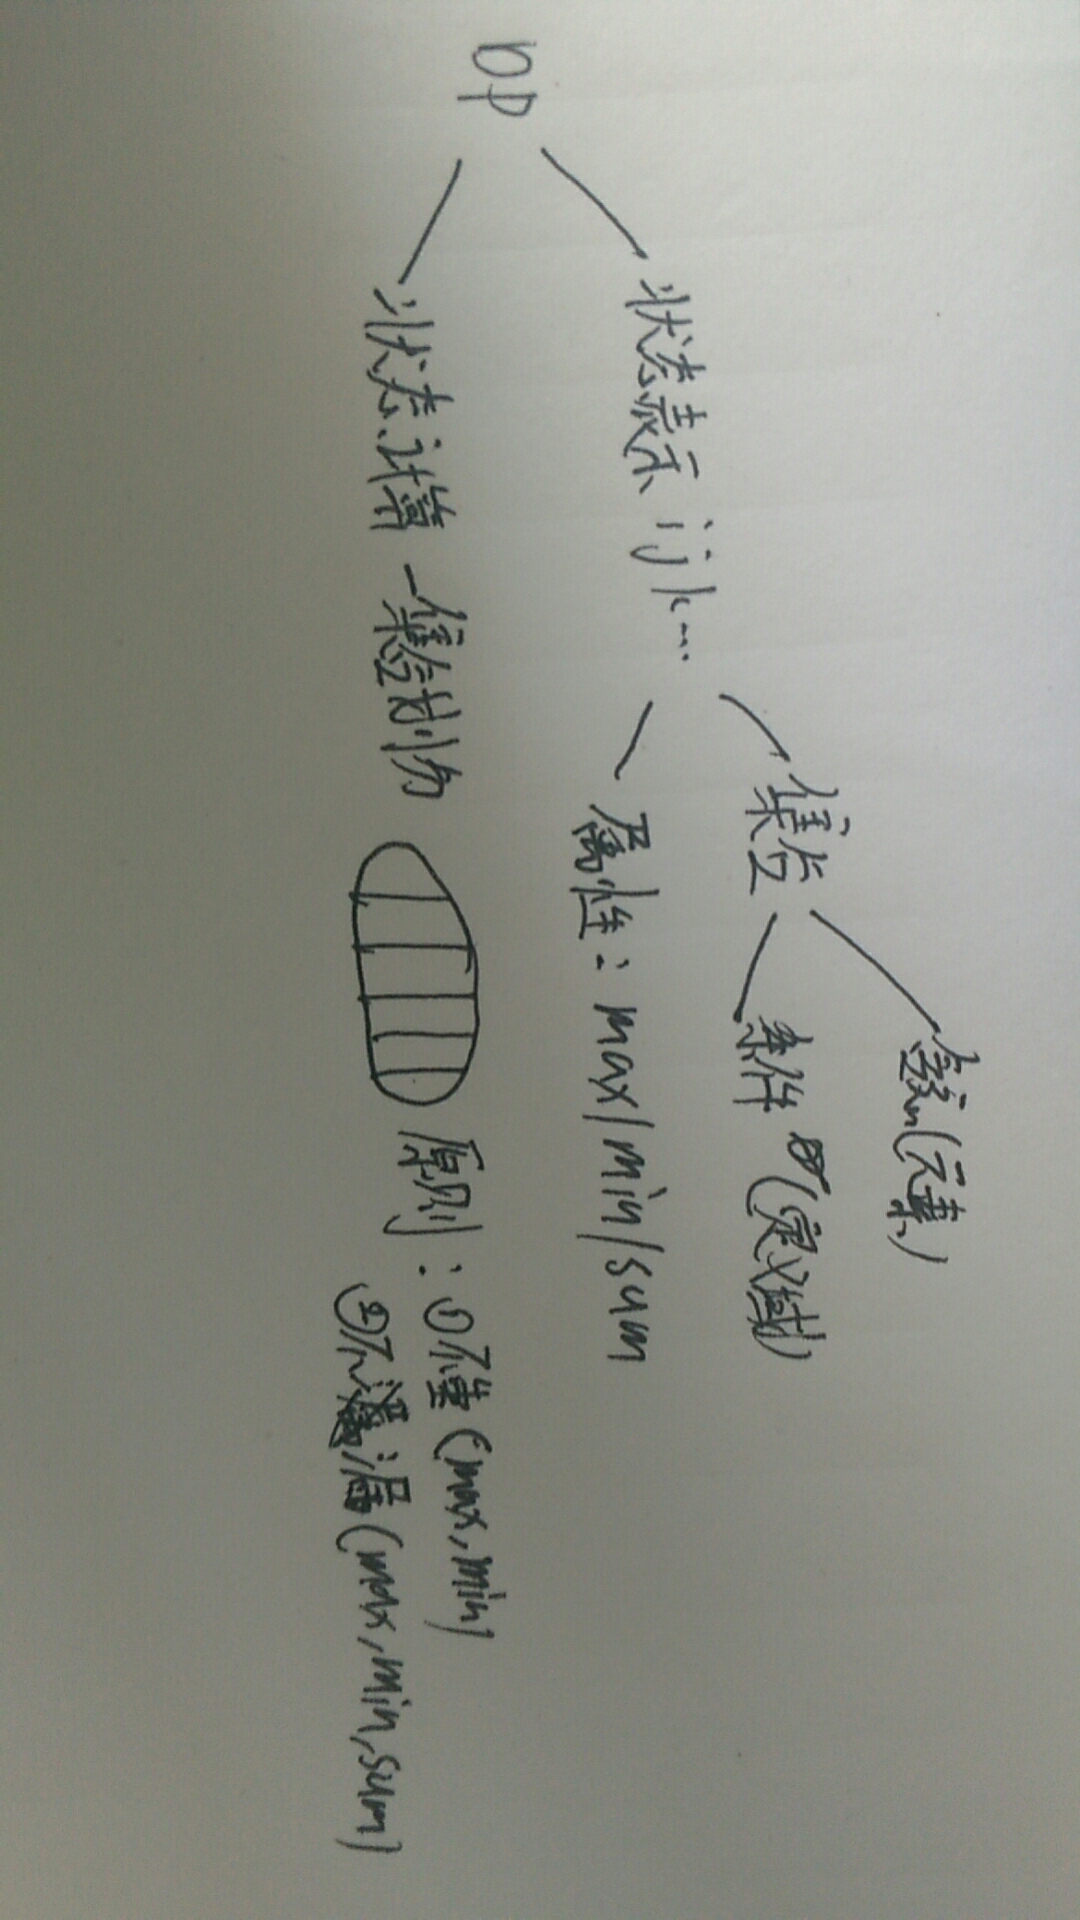 DP
状态表示 i j k ...
集合
含义(元素)
条件 (定义域)
属性：max/min/sum
状态计算 — 集合划分
原则：①不重(max,min)
②不漏(max,min,sum)